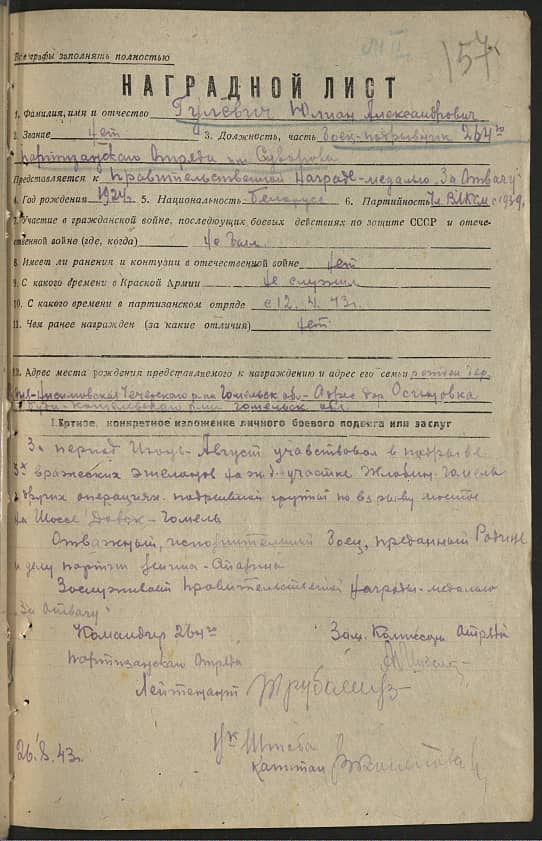 Все графы заполнять полностью
157
НАГРАДНОЙ ЛИСТ
1. Фамилия, имя и отчество Гулевич Юлиан Александрович
2. Звание нет 3. Должность, часть боец-подрывник 264го
партизанского отряда им Суворова
Представляется к правительственной награде - медалью "За Отвагу"
4. Год рождения 1924г. 5. Национальность Беларус 6. Партийность Чл. ВЛКСМ с 1939г
7. Участие в гражданской войне, последующих боевых действиях по защите СССР и отече-
ственной войне (где, когда) не был
8. Имеет ли ранения и контузии в отечественной войне нет
9. С какого времени в Красной Армии не служил
10. С какого времени в партизанском отряде с 12. 4. 43г.
11. Чем ранее награжден (за какие отличия) нет
12. Адрес места рождения представляемого к награждению и адрес его семьи
Чечерского р-на Гомельск обл - Адрес дер. Осиновка
Буда-Кошелевского р-на Гомельск обл.
1. Краткое, конкретное изложение личного боевого подвига или заслуг
За период Июнь, Август участвовал в подрыве
3х вражеских эшелонов на ж.д. участке Жлобин-Гомель
и других операциях подрывной группы по взрыву мостов
на шоссе Довск - Гомель
Отважный, исполнительный боец, преданный Родине
и делу партии Ленина-Сталина
Заслуживает правительственной награды - медалью
"За отвагу"
Командир 264го Зам. Комиссара отряда
партизанского отряда
Лейтенант
Штаба
26.8.43г. капитан